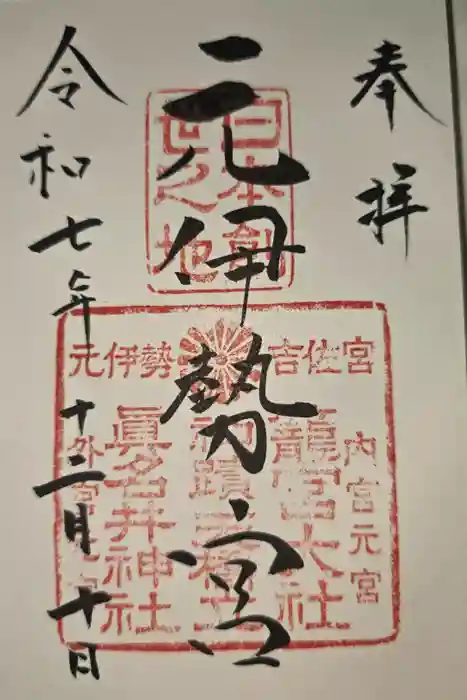 奉拝
元伊勢宮
令和七年十二月十日
日本創
世之地
元伊勢 吉佐宮
内宮元宮
籠宮大社
眞名井神社
外宮元宮